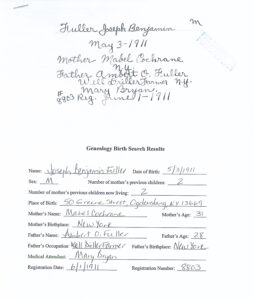 Fuller Joseph Benjamin M
May 3-1911
Mother Mabel Cochrane
N.Y.
Father Ambert O. Fuller
Well Driller Farmer N.Y.
Mary Bryan
8803 Reg. June 1-1911
Genealogy Birth Search Results
Name: Joseph Benjamin Fuller Date of Birth: 5/3/1911
Sex: M Number of mother's previous children: 2
Number of mother's previous children now living: 2
Place of Birth: 50 Greene Street, Ogdensburg, NY 13669
Mother's Name: Mabel Cochrane Mother's Age: 31
Mother's Birthplace: New York
Father's Name: Ambert O. Fuller Father's Age: 28
Father's Occupation: Well Driller Farmer Father's Birthplace: New York
Medical Attendant: Mary Bryan
Registration Date: 6/1/1911 Registration Number: 8803